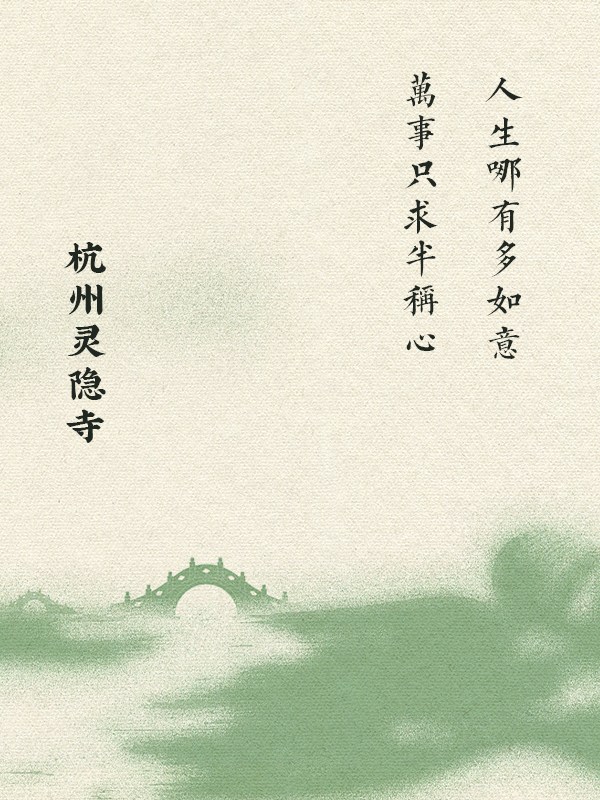 人生哪有多如意
萬事只求半稱心
杭州灵隐寺